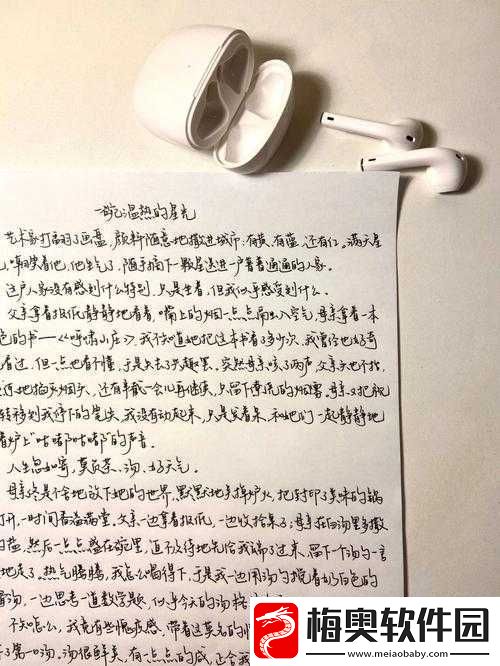 一碗温热的星光
艺术家打翻了画盘，颜料随意地撒进城市：有黄，有蓝，还有红。满天星
嘲笑着他，他生气了，随手摘下一颗星送进一户普普通通的人家。
这户人家没有感到什么特别，只是坐着，但我似乎感受到什么。
父亲拿着报纸静静地看着，嘴上的烟一点点屑出入空气，母亲拿着一本
色的书——《呼啸山庄》，我不知道她把这本书看了多少次，我曾经也好奇
看过，但一点也看不懂，于是失去了兴趣罢。突然母亲咳了两声，父亲头也不抬，
地掐灭烟头，还有半截一会儿再继续，只留下零乱的烟雾，母亲又把视
转移到我停下的笔尖，我没有动起来，只是呆着，和她们一起静静地
着炉上"咕嘟咕嘟"的声音。
人生忽如寄，莫负茶、汤、好天气。
母亲终是不舍地放下她的世界，默默地关掉炉火，把封印了美味的锅
打开，一时间香溢满堂。父亲一边拿着报纸，一边收拾桌子；母亲在白汤里多撒
的盐，然后一点点盛在碗里，迫不及待地先给我端了过来，留下一个汤勺一言
地走了。热气腾腾，我怎么喝得下，于是我一边用汤勺搅着奶白色的
汤，一边思考一道数学题，似乎今天的汤
不知怎么，我竟有些愧疚感，带着这莫名的
了第一口汤。汤很鲜美，有一点点的咸，正合我
梅奥软件园
www.meiaobaby.com